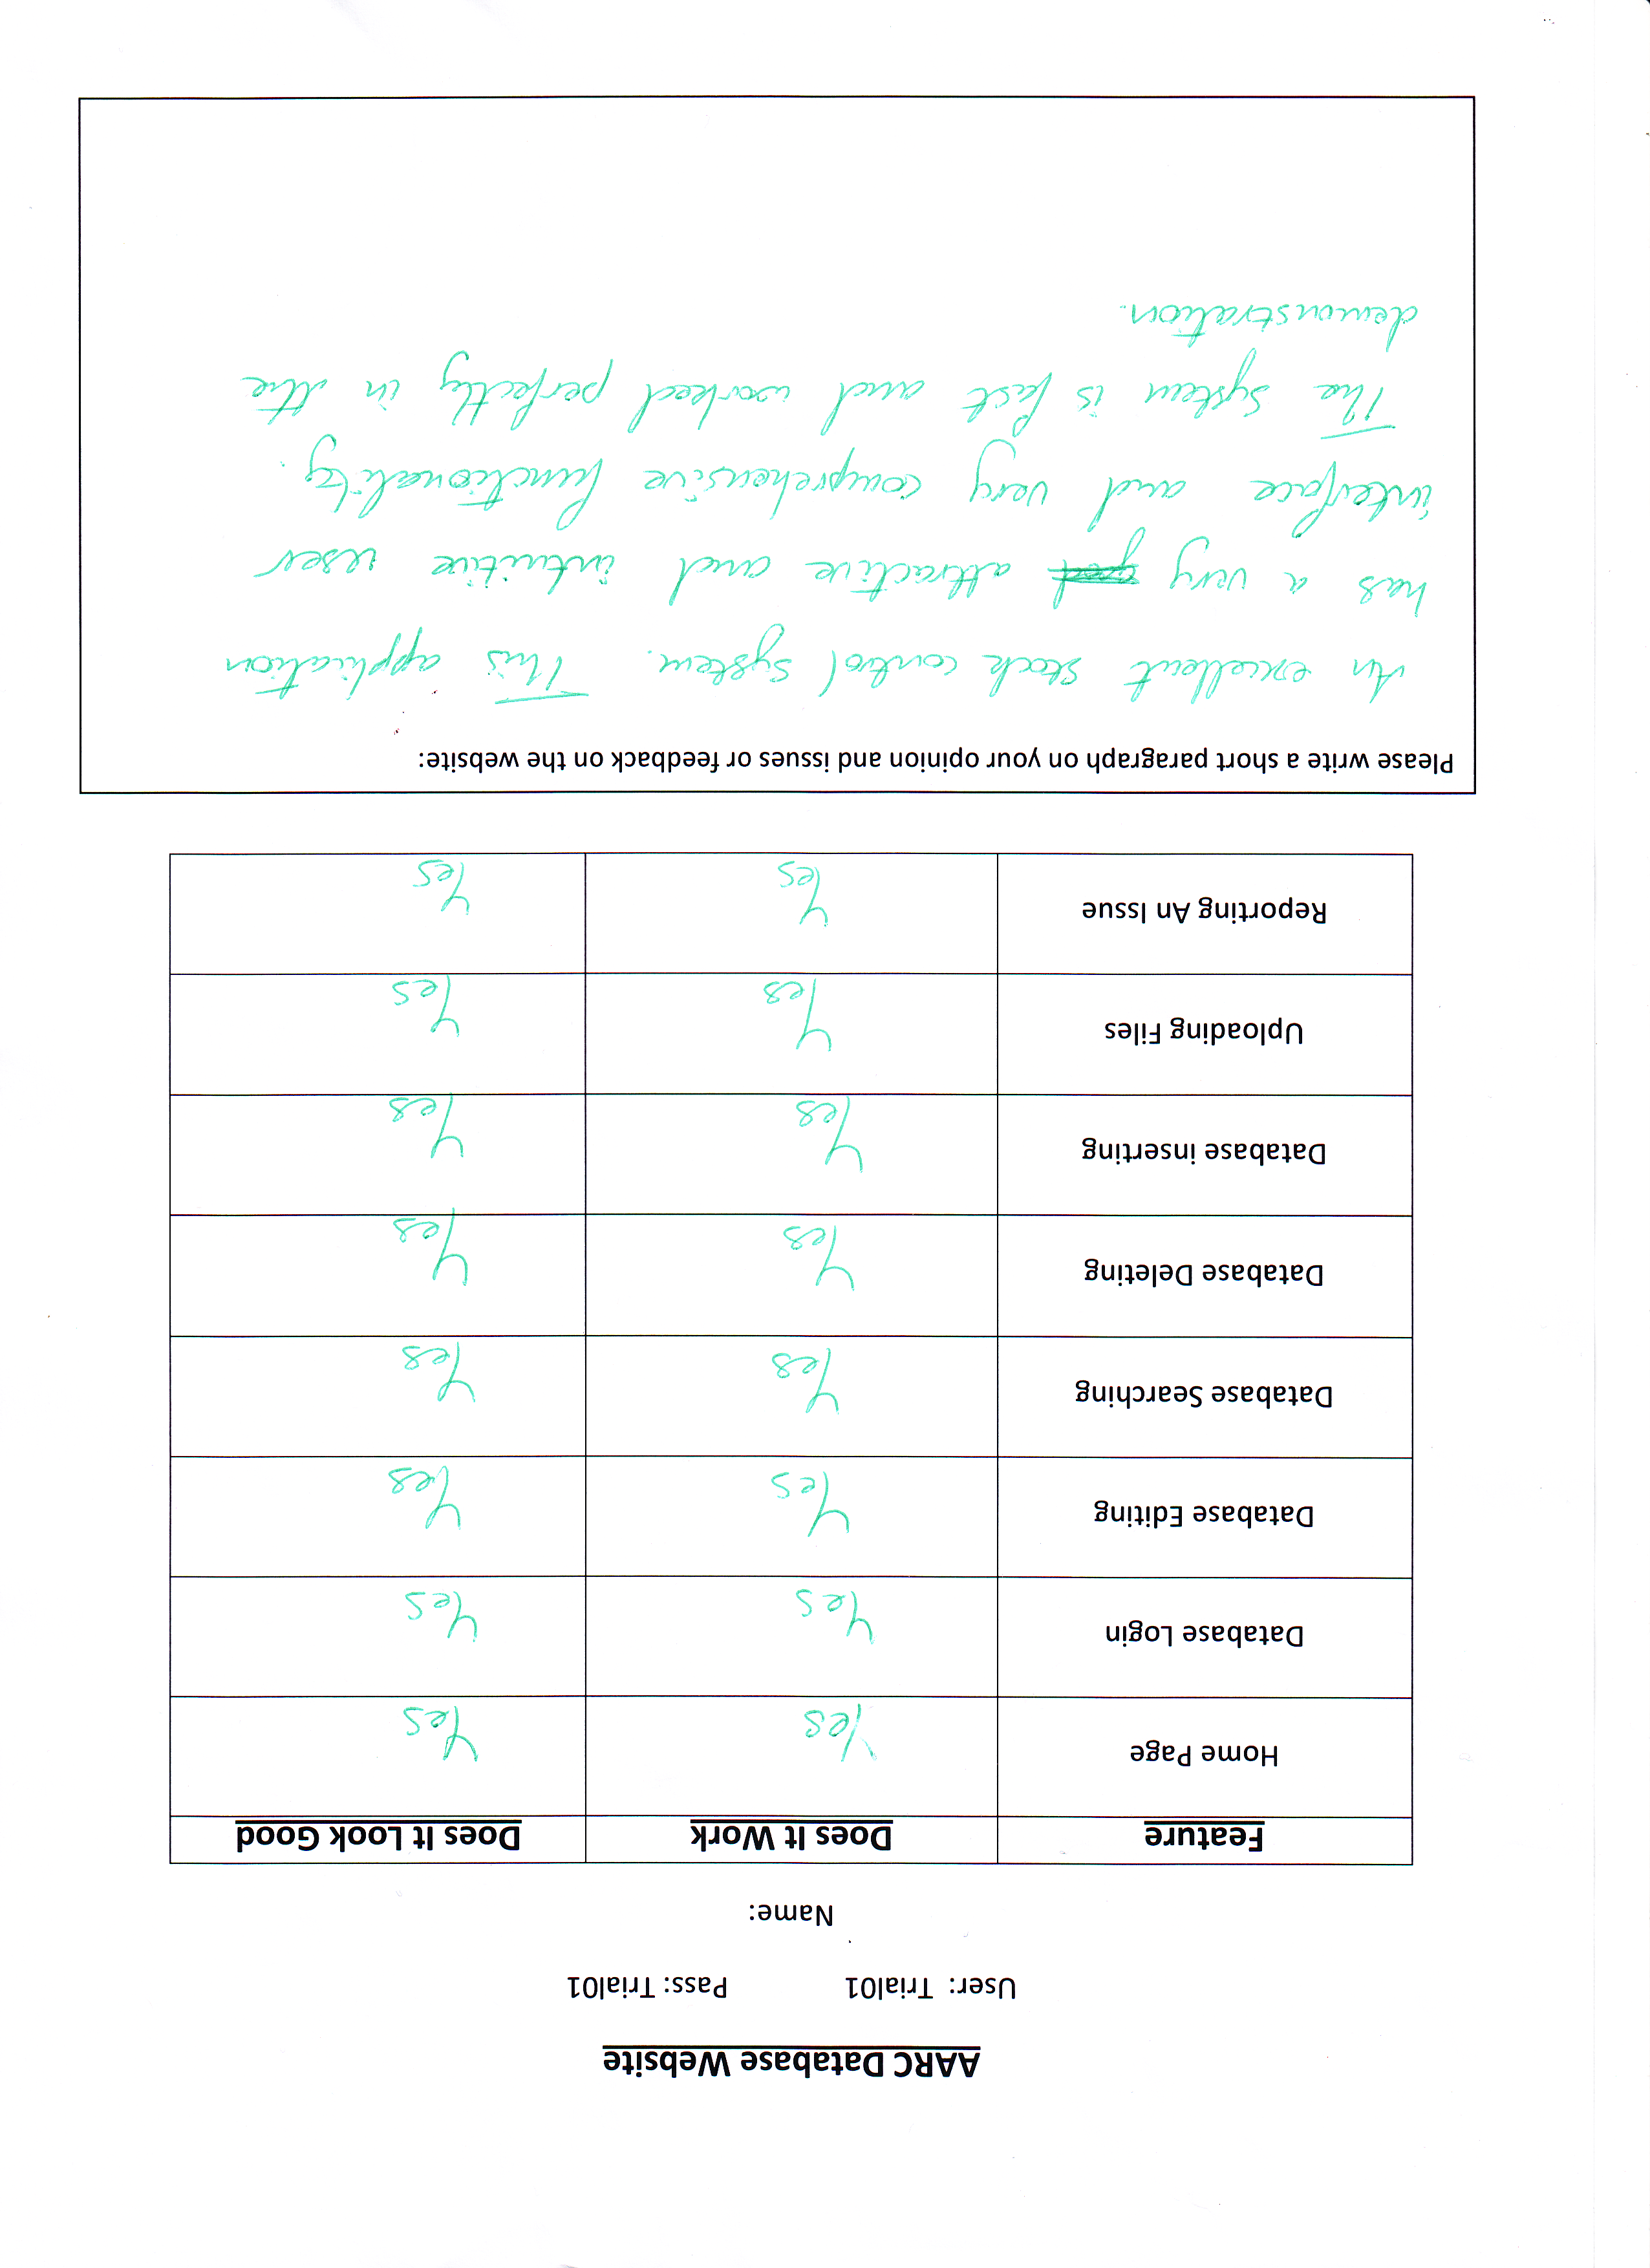 AARC Database Website
User: Trial01 Pass: Trial01
Name:
Feature Does It Work Does It Look Good
Home Page Yes Yes
Database Login Yes Yes
Database Editing Yes Yes
Database Searching Yes Yes
Database Deleting Yes Yes
Database inserting Yes Yes
Uploading Files Yes Yes
Reporting An Issue Yes Yes
Please write a short paragraph on your opinion and issues or feedback on the website:
An excellent stock control system. This application
has a very attractive and intuitive user
interface and very comprehensive functionality.
The system is fast and worked perfectly in the
demonstration.